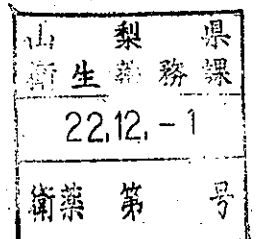 山梨県
衛生薬務課
22.12.-1
衛薬第 号